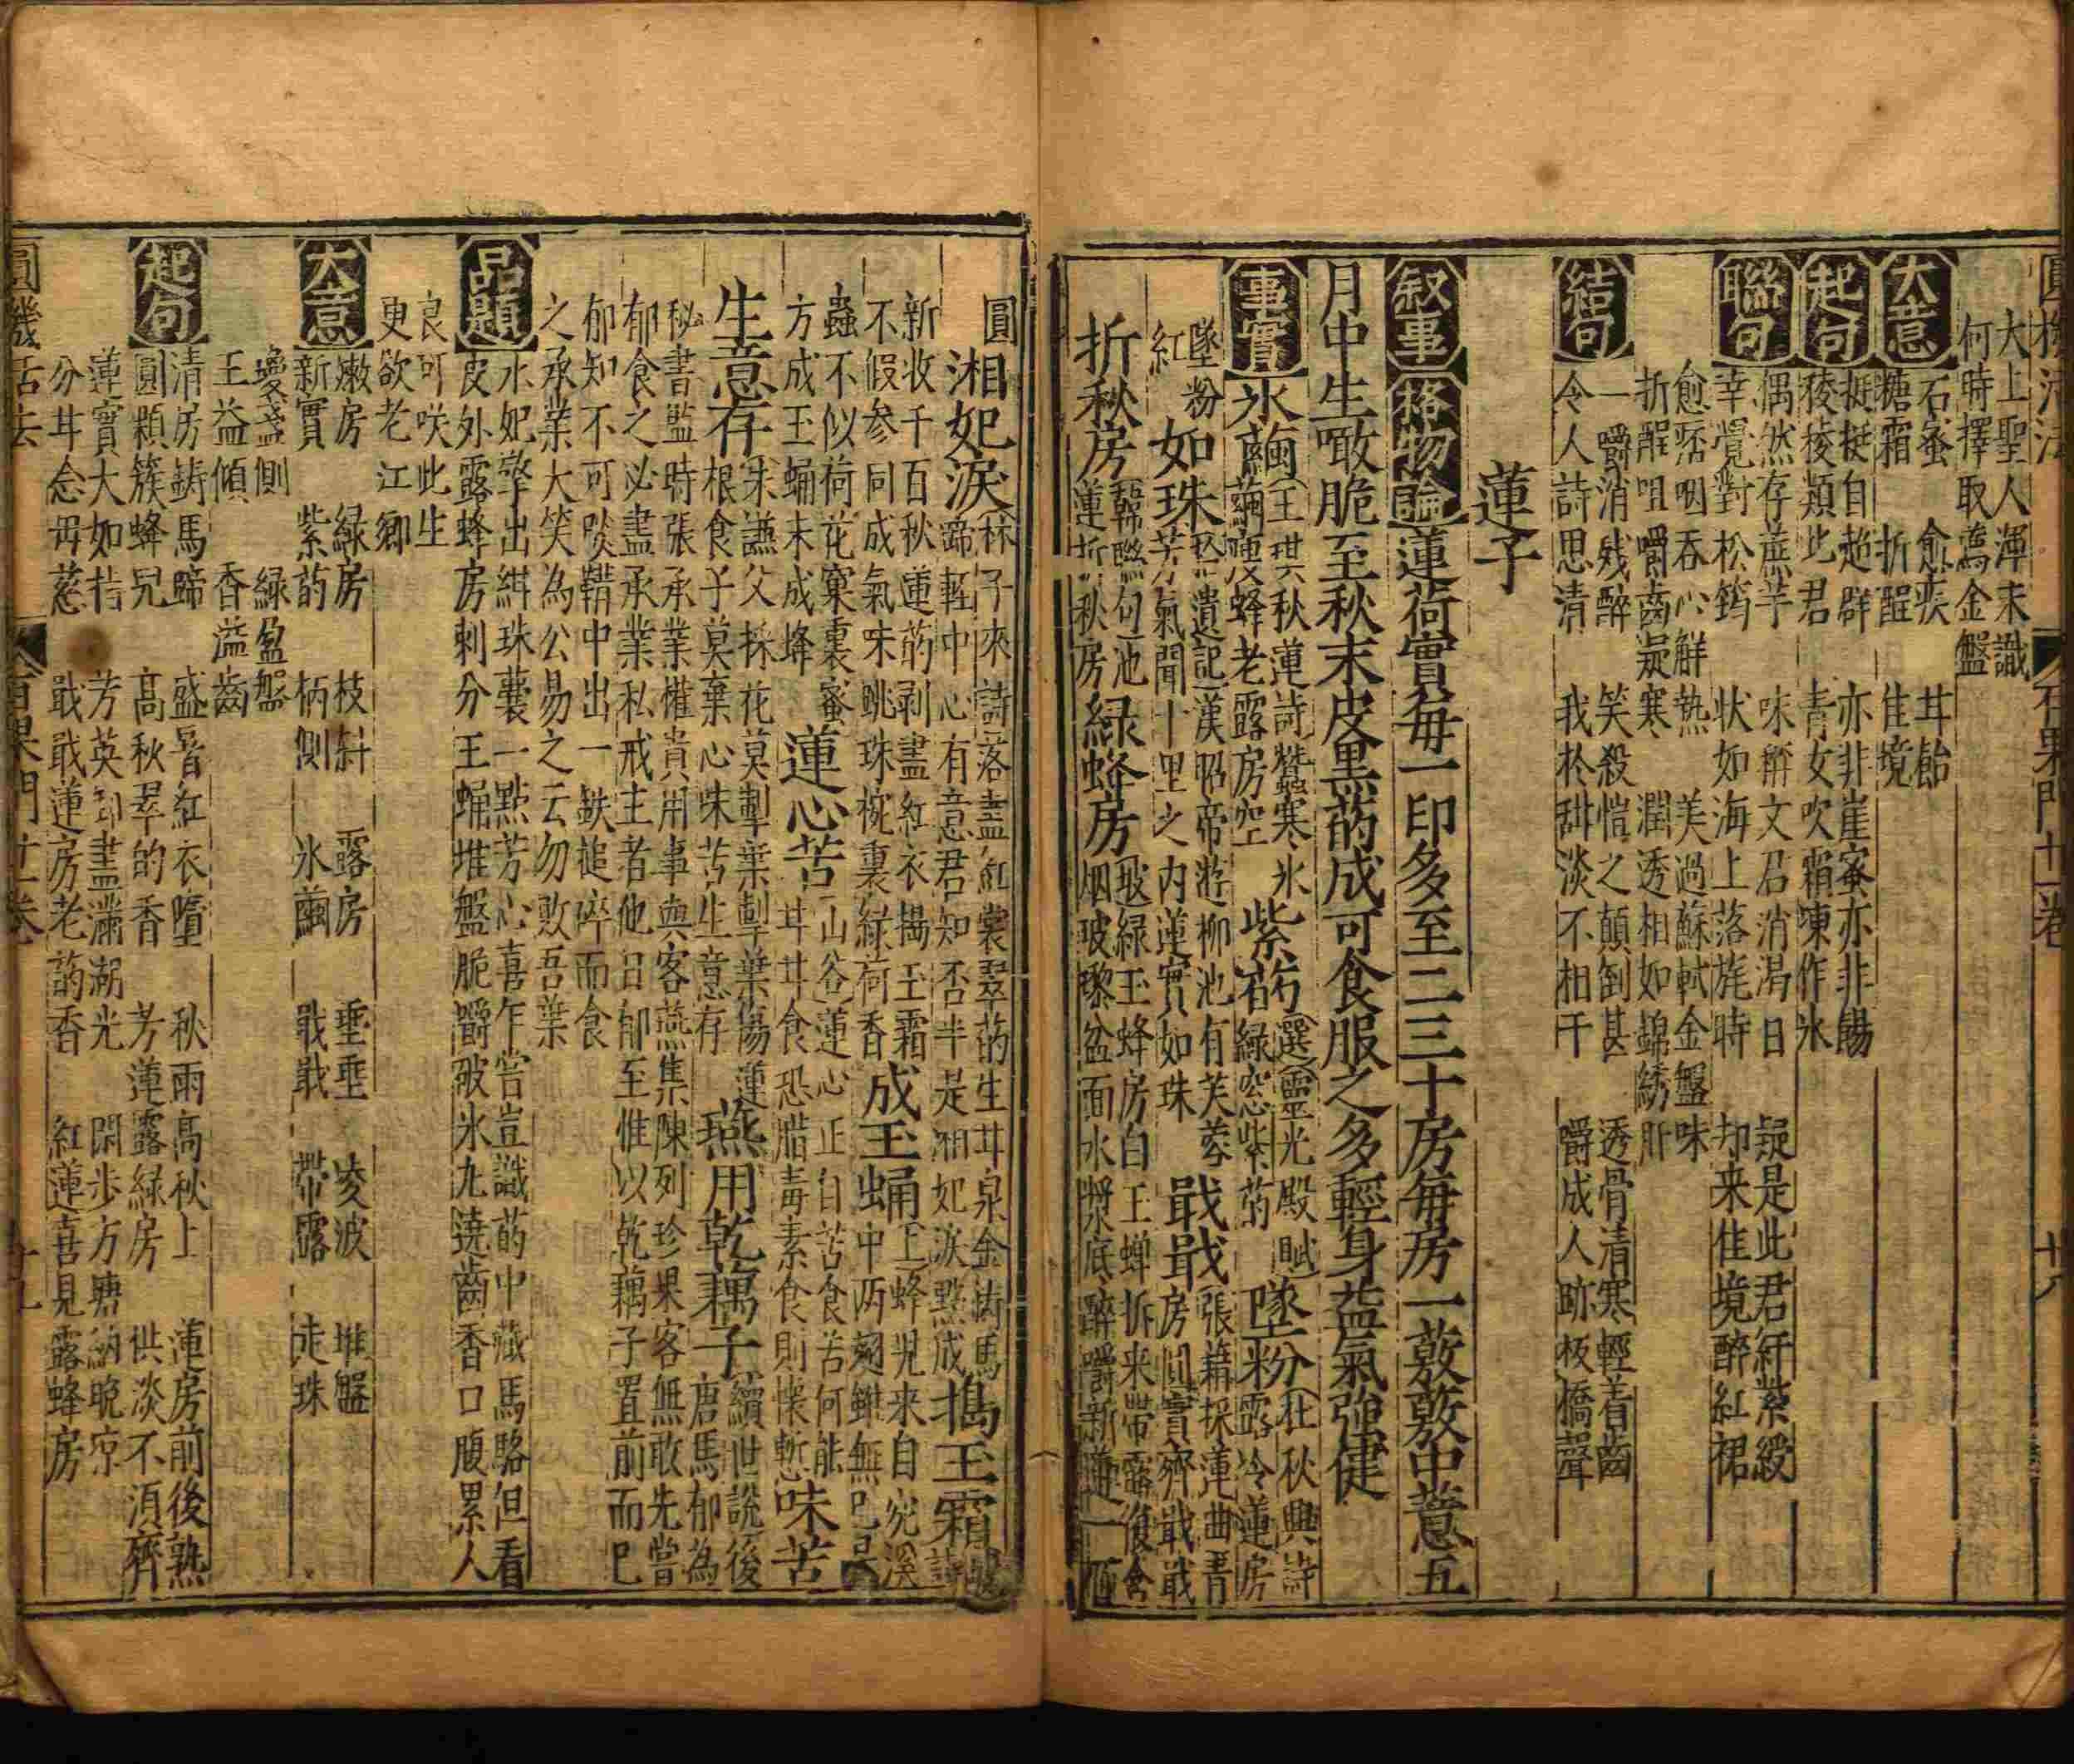 圓機活法 百果門廿一卷 十八
大上聖人渾未識
何時擇取薦金盤
大意 石蜜 愈疾 甘飴
糖霜 折酲 佳境
起句 挺挺自超群 亦非崖蜜亦非餳
稜稜類此君 青女吹霜凍作氷
聯句 偶然存蔗芋 味辭文君消渴日 疑是此君紆紫綬
幸覺對松筠 狀如海上落旄時 却来佳境醉紅裙
愈痞咽吞心觧熱 美過蘇軾金盤味
折酲咀嚼齒凝寒 潤透相如錦綉肝
結句 一嚼消殘醉 笑殺愷之顛倒甚 透骨清寒輕着齒
令人詩思清 我於甜淡不相干 嚼成人跡板橋聲
蓮子
叙事 格物論 蓮荷實每一印多至二三十房每房一菂菂中薏五
月中生噉脆至秋末皮黒菂成可食服之多輕身益氣強健
事實 氷繭 王琪秋蓮詩蠶寒氷
繭硬蜂老露房空 紫菂 選靈光殿賦
綠窓紫菂 墜粉 杜秋興詩
露冷蓮房
墜粉
紅 如珠 拾遺記漢昭帝游柳池有芙蓉
芳氣聞十里之内蓮實如珠 戢戢 張籍採蓮曲青
房圓實齊戢戢
折秋房 韓聯句池
蓮折秋房 緑蜂房 瑕緑玉蜂房白玉蟬拆来帶露復含
烟玻瓈盆面水漿底醉嚼新蓮一百
圓 湘妃淚 林子來詩落盡紅裳翠菂生甘泉金鑄馬
蹄輕中心有意君知否半是湘妃淚點成 搗玉霜
新收千百秋蓮菂剥盡紅衣搗玉霜
不假參同成氣味跳珠椀裏綠荷香 成玉蛹 上蜂兒来自宛溪
中两翅雖無已是
蟲不似荷花窠裏蜜
方成玉蛹未成蜂 蓮心苦 山谷蓮心正自苦食苦何能
甘甘食恐腊毒素食則懷慙 味苦
生意存 朱謙父採花莫䡖葉䡖葉傷蓮
根食子莫棄心味苦生意存 燕用乾藕子 續世說後
唐馬郁為
秘書監時張承業權貴用事與客燕集陳列珍果客無敢先嘗
郁食之必盡承業私戒主者他日郁至惟以乾藕子置前而已
郁知不可啖鞾中出一鉄槌碎而食
之承業大笑為公易之云勿敗吾葉
品題 水妃擎出緋珠囊一點芳心喜乍嘗豈識菂中藏馬駱但看
皮外露蜂房刺分玉蛹堆盤脆嚼破氷丸遶齒香口腹累人
良可咲此生
更欲老江郷
大意 嫩房 緑房 枝斜 露房 垂垂 凌波 堆盤
新實 紫菂 柄側 氷繭 戢戢 帶露 走珠
瓊盞側 緑盈盤
玉益傾 香溢齒
起句 清房鋳馬蹄 盛暑紅衣墮 秋雨高秋上 蓮房前後熟
圓顆簇蜂兒 高秋翠的香 芳蓮露緑房 供淡不湏齊
蓮實大如栝 芳英到盡瀟湖光 閑步方塘納晚凉
分甘念毋慈 戢戢蓮房老菂香 紅蓮喜見露蜂房
圓機活法 百果門廿一卷 十九